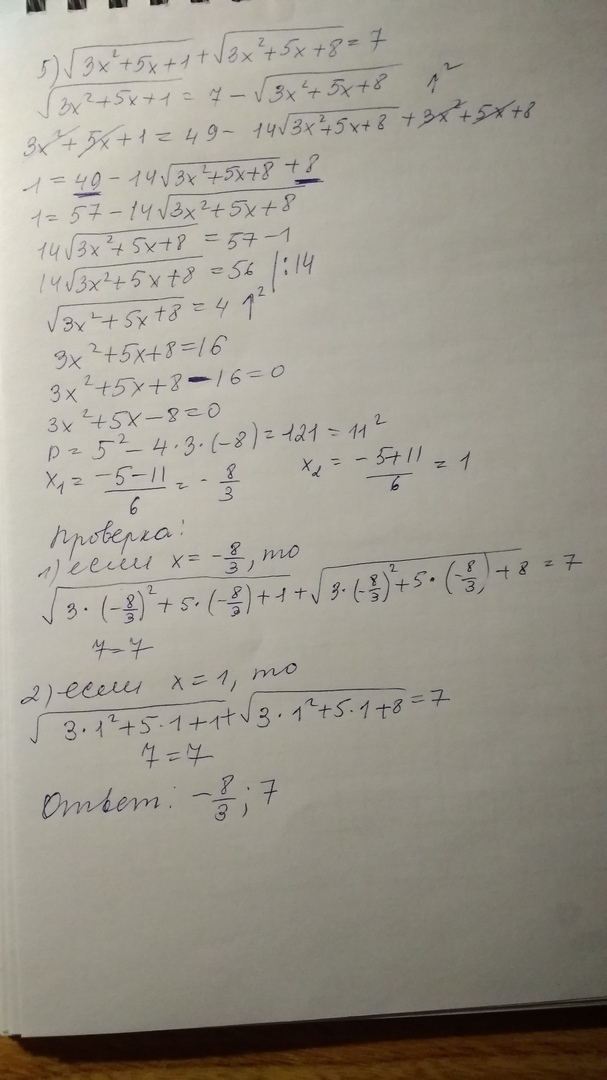 5) √(3x²+5x+1) + √(3x²+5x+8) = 7
√(3x²+5x+1) = 7 - √(3x²+5x+8) ↑²
3x²+5x+1 = 49 - 14√(3x²+5x+8) + 3x²+5x+8
1 = 49 - 14√(3x²+5x+8) + 8
1 = 57 - 14√(3x²+5x+8)
14√(3x²+5x+8) = 57-1
14√(3x²+5x+8) = 56 |:14
√(3x²+5x+8) = 4 ↑²
3x²+5x+8=16
3x²+5x+8-16=0
3x²+5x-8=0
D = 5² - 4·3·(-8) = 121 = 11²
x₁ = (-5-11)/6 = -8/3 x₂ = (-5+11)/6 = 1
Проверка:
1) если x = -8/3, то
√(3·(-8/3)²+5·(-8/3)+1) + √(3·(-8/3)²+5·(-8/3)+8) = 7
7=7
2) если x=1, то
√(3·1²+5·1+1) + √(3·1²+5·1+8) = 7
7=7
Ответ: -8/3; 7